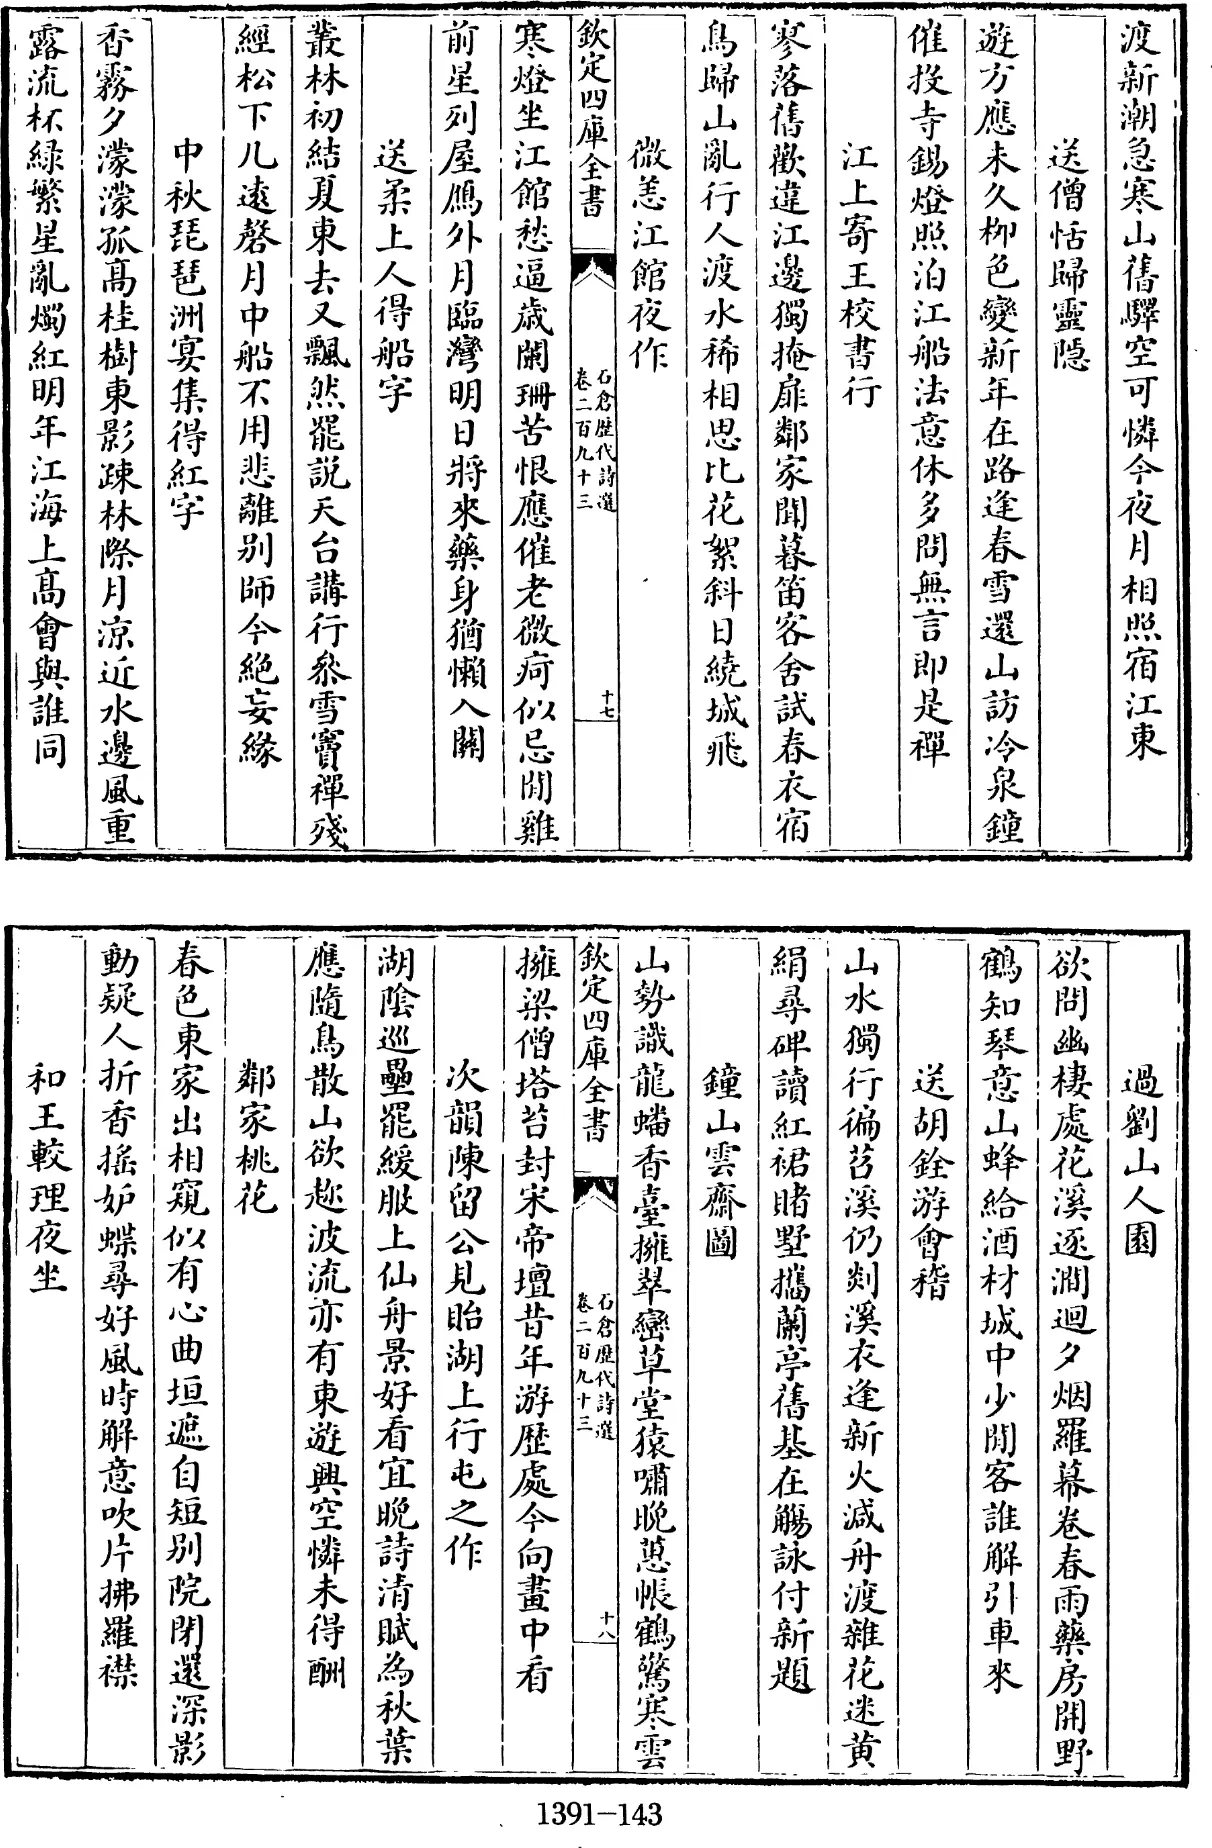 渡新潮急寒山舊驛空可憐今夜月相照宿江東
送僧恬歸靈隠
遊方應未久柳色變新年在路逢春雪還山訪冷泉鐘
催投寺錫燈照泊江船法意休多問無言即是禪
江上寄王校書行
寥落舊歡違江邊獨掩扉鄰家聞暮笛客舍試春衣宿
鳥歸山亂行人渡水稀相思比花絮斜日繞城飛
微恙江館夜作
欽定四庫全書
石倉歷代詩選
卷二百九十三
十七
寒燈坐江館愁逼歲闌珊苦恨應催老微疴似忌閒雞
前星列屋鴈外月臨灣明日將來藥身猶懶入關
送柔上人得船字
叢林初結夏東去又飄然罷説天台講行叅雪竇禪殘
經松下几遠磬月中船不用悲離别師今絶妄緣
中秋琵琶洲宴集得紅字
香霧夕濛濛孤髙桂樹東影疎林際月凉近水邊風重
露流杯緑繁星亂燭紅明年江海上髙會與誰同
過劉山人園
欲問幽棲處花溪逐澗迴夕烟羅幕卷春雨藥房開野
鶴知琴意山蜂給酒材城中少閒客誰解引車來
送胡銓游會稽
山水獨行徧苕溪仍剡溪衣逢新火減舟渡雜花迷黄
絹尋碑讀紅裙賭墅攜蘭亭舊基在觴詠付新題
鐘山雲齋圖
山勢識龍蟠香臺擁翠巒草堂猿嘯晩蕙帳鶴驚寒雲
欽定四庫全書
石倉歷代詩選
卷二百九十三
十八
擁梁僧塔苔封宋帝壇昔年游歴處今向畫中看
次韻陳留公見貽湖上行屯之作
湖陰巡壘罷緩服上仙舟景好看宜晩詩清賦為秋葉
應隨鳥散山欲趂波流亦有東遊興空憐未得酬
鄰家桃花
春色東家出相窺似有心曲垣遮自短别院閉還深影
動疑人折香搖妒蝶尋好風時解意吹片拂羅襟
和王較理夜坐
1391-143